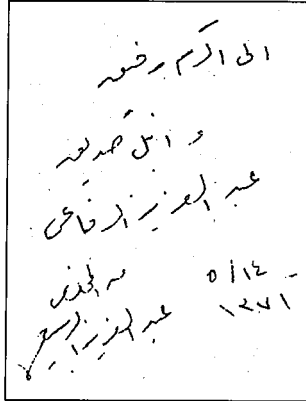 الى اكرم رفيق
و انبل صديق
عبد العزيز الرفاعي
من المخلص
عبد العزيز الربيع
٥/١٤
١٣٧١